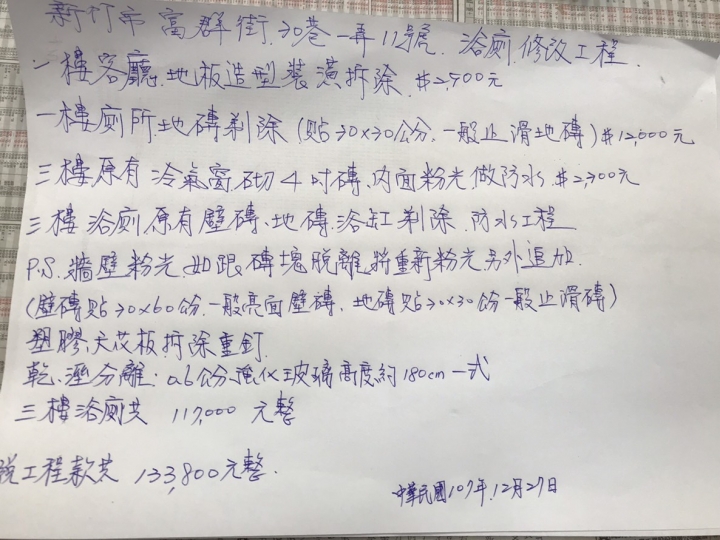 新竹市富群街30巷一弄11號. 浴廁修改工程.
一樓客廳.地板造型裝潢拆除. #2,500元
一樓廁所.地磚剃除 (貼30x30公分.一般止滑地磚) #12,000元
三樓原有冷氣窗砌4吋磚.內面粉光做防水 #2,300元
三樓浴廁原有壁磚、地磚.浴缸剃除 防水工程
P.S. 牆壁粉光.如跟磚塊脫離將重新粉光另外追加.
(壁磚貼30x60公份.一般亮面壁磚. 地磚貼30x30公份一般止滑磚)
塑膠天花板拆除重釘
乾、溼分離: 0.6公分.強化玻璃高度約180cm一式
三樓浴廁共 117,000 元整
工程款共 133,800元整.
中華民國107年.12月27日